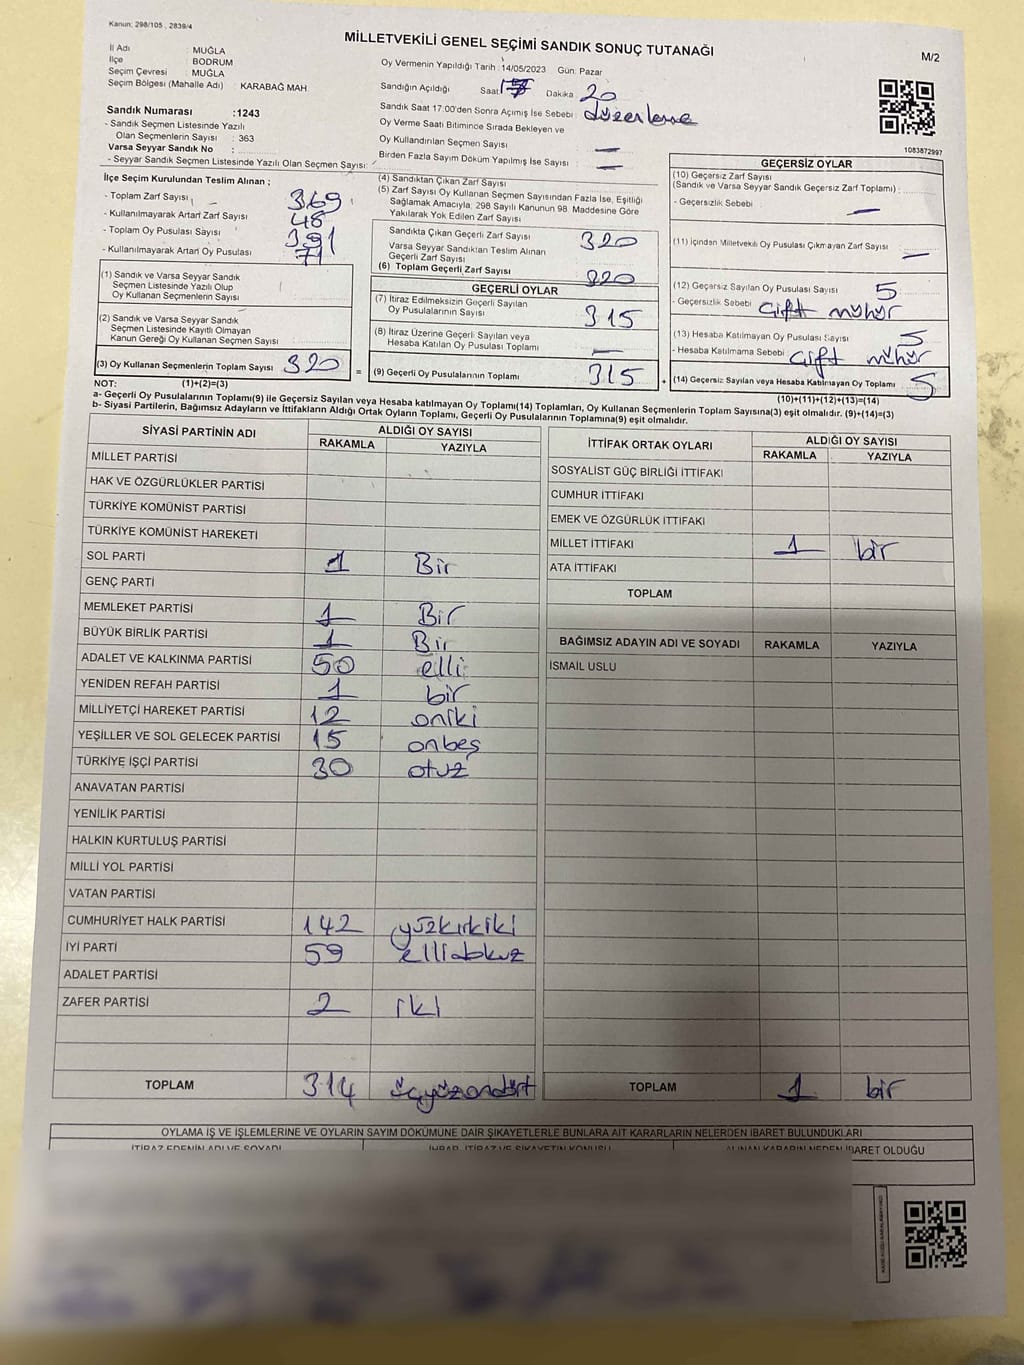 Kanun: 298/105 , 2839/4
MİLLETVEKİLİ GENEL SEÇİMİ SANDIK SONUÇ TUTANAĞI
M/2
İl Adı : MUĞLA
İlçe : BODRUM
Seçim Çevresi : MUĞLA
Seçim Bölgesi (Mahalle Adı) : KARABAĞ MAH.
Sandık Numarası :1243
- Sandık Seçmen Listesinde Yazılı
Olan Seçmenlerin Sayısı : 363
Varsa Seyyar Sandık No :
- Seyyar Sandık Seçmen Listesinde Yazılı Olan Seçmen Sayısı:
Oy Vermenin Yapıldığı Tarih :14/05/2023 Gün: Pazar
Sandığın Açıldığı Saat Dakika 20
Sandık Saat 17:00'den Sonra Açılmış İse Sebebi : düzenleme
Oy Verme Saati Bitiminde Sırada Bekleyen ve
Oy Kullandırılan Seçmen Sayısı : —
Birden Fazla Sayım Döküm Yapılmış İse Sayısı : —
1083872997
İlçe Seçim Kurulundan Teslim Alınan ;
- Toplam Zarf Sayısı 369
- Kullanılmayarak Artan Zarf Sayısı 48
- Toplam Oy Pusulası Sayısı 391
- Kullanılmayarak Artan Oy Pusulası 71
(1) Sandık ve Varsa Seyyar Sandık
Seçmen Listesinde Yazılı Olup
Oy Kullanan Seçmenlerin Sayısı
(2) Sandık ve Varsa Seyyar Sandık
Seçmen Listesinde Kayıtlı Olmayan
Kanun Gereği Oy Kullanan Seçmen Sayısı
(3) Oy Kullanan Seçmenlerin Toplam Sayısı 320
=
(4) Sandıktan Çıkan Zarf Sayısı
(5) Zarf Sayısı Oy Kullanan Seçmen Sayısından Fazla İse, Eşitliği
Sağlamak Amacıyla; 298 Sayılı Kanunun 98. Maddesine Göre
Yakılarak Yok Edilen Zarf Sayısı
Sandıkta Çıkan Geçerli Zarf Sayısı 320
Varsa Seyyar Sandıktan Teslim Alınan
Geçerli Zarf Sayısı
(6) Toplam Geçerli Zarf Sayısı 320
GEÇERLİ OYLAR
(7) İtiraz Edilmeksizin Geçerli Sayılan
Oy Pusulalarının Sayısı 315
(8) İtiraz Üzerine Geçerli Sayılan veya
Hesaba Katılan Oy Pusulası Toplamı —
(9) Geçerli Oy Pusulalarının Toplamı 315
+
GEÇERSİZ OYLAR
(10) Geçersiz Zarf Sayısı
(Sandık ve Varsa Seyyar Sandık Geçersiz Zarf Toplamı) :
- Geçersizlik Sebebi : —
(11) İçinden Milletvekili Oy Pusulası Çıkmayan Zarf Sayısı —
(12) Geçersiz Sayılan Oy Pusulası Sayısı 5
- Geçersizlik Sebebi : Çift mühür
(13) Hesaba Katılmayan Oy Pusulası Sayısı 5
- Hesaba Katılmama Sebebi : Çift mühür
(14) Geçersiz Sayılan veya Hesaba Katılmayan Oy Toplamı 5
NOT: (1)+(2)=(3)
(10)+(11)+(12)+(13)=(14)
a- Geçerli Oy Pusulalarının Toplamı(9) ile Geçersiz Sayılan veya Hesaba katılmayan Oy Toplamı(14) Toplamları, Oy Kullanan Seçmenlerin Toplam Sayısına(3) eşit olmalıdır. (9)+(14)=(3)
b- Siyasi Partilerin, Bağımsız Adayların ve İttifakların Aldığı Ortak Oyların Toplamı, Geçerli Oy Pusulalarının Toplamına(9) eşit olmalıdır.
SİYASİ PARTİNİN ADI ALDIĞI OY SAYISI
RAKAMLA YAZIYLA
MİLLET PARTİSİ
HAK VE ÖZGÜRLÜKLER PARTİSİ
TÜRKİYE KOMÜNİST PARTİSİ
TÜRKİYE KOMÜNİST HAREKETİ
SOL PARTİ 1 Bir
GENÇ PARTİ
MEMLEKET PARTİSİ 1 Bir
BÜYÜK BİRLİK PARTİSİ 1 Bir
ADALET VE KALKINMA PARTİSİ 50 elli
YENİDEN REFAH PARTİSİ 1 bir
MİLLİYETÇİ HAREKET PARTİSİ 12 oniki
YEŞİLLER VE SOL GELECEK PARTİSİ 15 onbeş
TÜRKİYE İŞÇİ PARTİSİ 30 otuz
ANAVATAN PARTİSİ
YENİLİK PARTİSİ
HALKIN KURTULUŞ PARTİSİ
MİLLİ YOL PARTİSİ
VATAN PARTİSİ
CUMHURİYET HALK PARTİSİ 142 yüzkırkiki
İYİ PARTİ 59 ellidokuz
ADALET PARTİSİ
ZAFER PARTİSİ 2 iki
TOPLAM 314 üçyüzondört
İTTİFAK ORTAK OYLARI ALDIĞI OY SAYISI
RAKAMLA YAZIYLA
SOSYALİST GÜÇ BİRLİĞİ İTTİFAKI
CUMHUR İTTİFAKI
EMEK VE ÖZGÜRLÜK İTTİFAKI
MİLLET İTTİFAKI 1 bir
ATA İTTİFAKI
TOPLAM
BAĞIMSIZ ADAYIN ADI VE SOYADI RAKAMLA YAZIYLA
İSMAİL USLU
TOPLAM 1 bir
OYLAMA İŞ VE İŞLEMLERİNE VE OYLARIN SAYIM DÖKÜMÜNE DAİR ŞİKAYETLERLE BUNLARA AİT KARARLARIN NELERDEN İBARET BULUNDUKLARI
İTİRAZ EDENİN ADI VE SOYADI İHBAR, İTİRAZ VE ŞİKAYETİN KONUSU ALINAN KARARIN NEDEN İBARET OLDUĞU